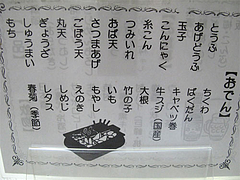 【おでん】
とうふ
あげどうふ
玉子
こんにゃく
糸こん
つみいれ
おば天
さつまあげ
ごぼう天
丸天
ぎょうざ
しゅうまい
もち
ちくわ
ばくだん
キャベツ巻
牛スジ(国産)
大根
竹の子
いも
もやし
えのき
しめじ
レタス
春菊(季節)